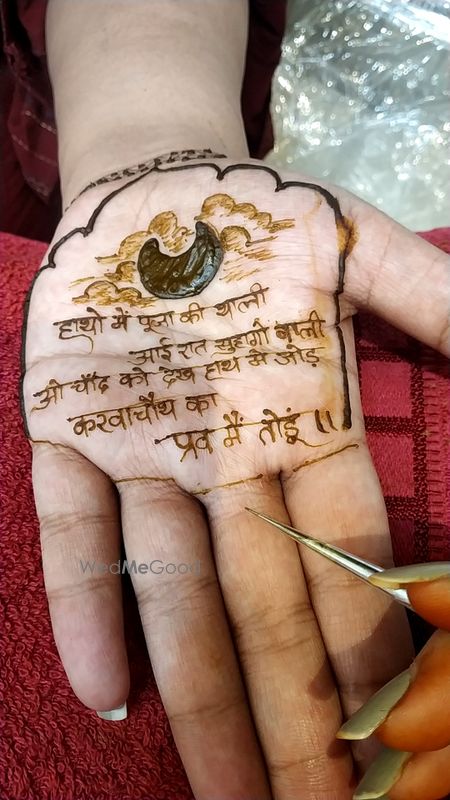 हाथो में पूजा की थाली
आई रात सुहागो वाली
ओ चाँद को देख हाथ मे जोड़
करवाचौथ का
प्रव मैं तोडूं ॥
WedMeGood